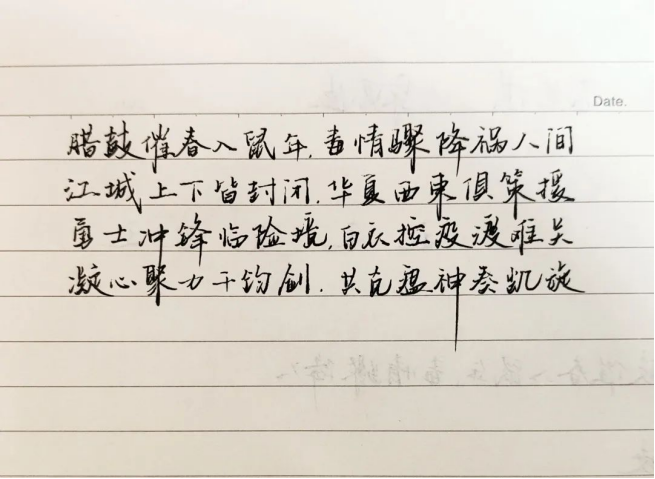 Date.
腊鼓催春入鼠年，毒情骤降祸人间
江城上下皆封闭，华夏西东俱策援
勇士冲锋临险境，白衣控疫渡难关
凝心聚力千钧剑，共克瘟神奏凯旋